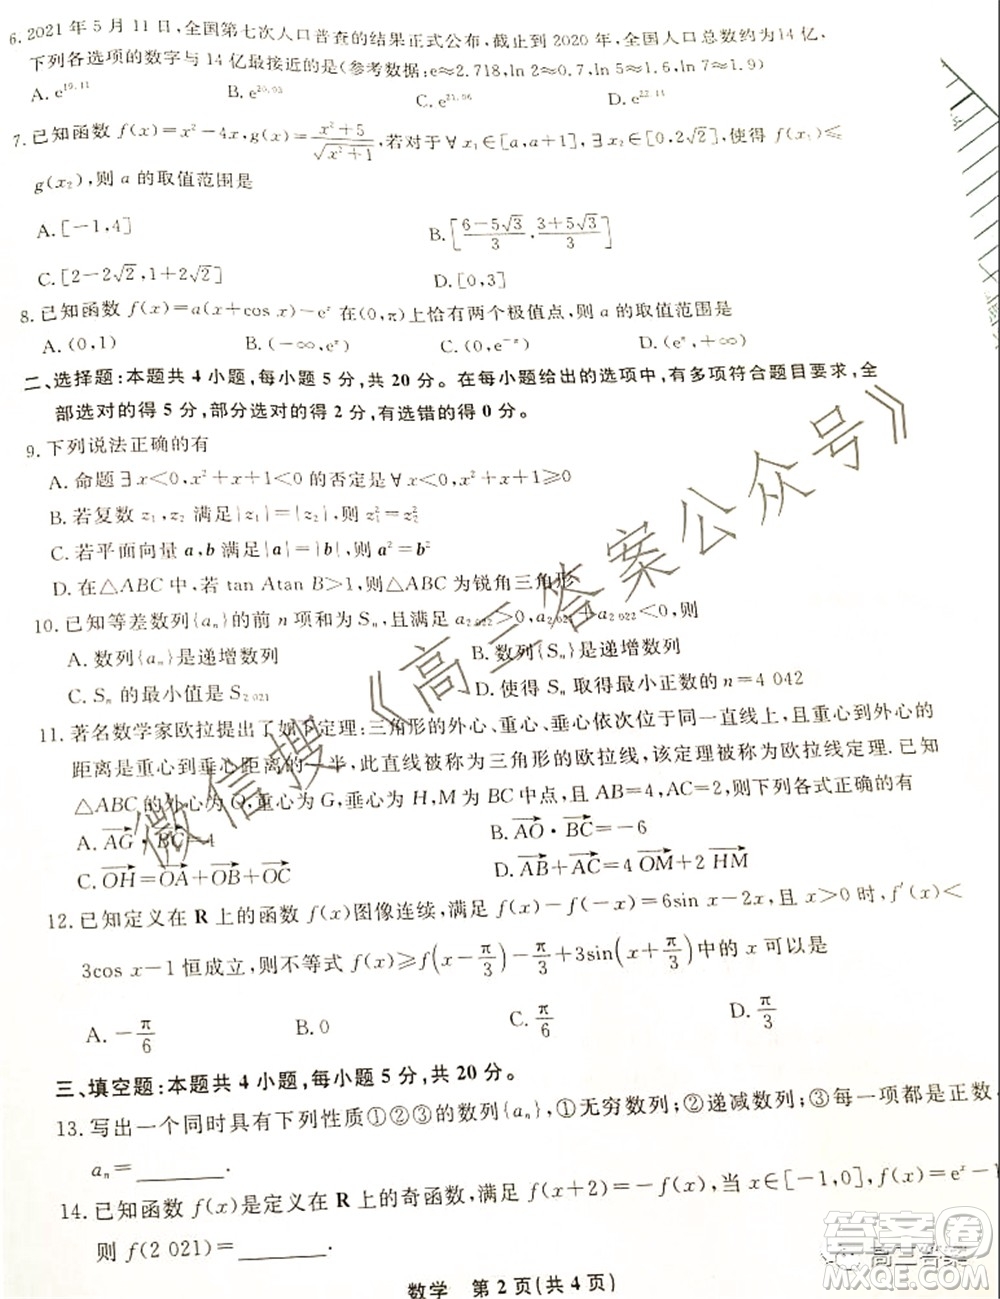 6. 2021 年 5 月 11 日,全国第七次人口普查的结果正式公布,截止到 2020 年,全国人口总数约为14 亿,
下列各选项的数字与 14 亿最接近的是(参考数据:e≈2.718,ln 2≈0.7,ln 5≈1.6,ln 7≈1.9)
A. e^{19.11} B. e^{20.03} C. e^{21.06} D. e^{22.11}
7. 已知函数 f(x)=x²-4x,g(x)=\frac{x²+5}{\sqrt{x²+1}},若对于∀x₁∈[a,a+1],∃x₂∈[0,2√2],使得 f(x₁)≤
g(x₂),则 a 的取值范围是
A. [-1,4] B. [\frac{6-5√3}{3},\frac{3+5√3}{3}]
C. [2-2√2,1+2√2] D. [0,3]
8. 已知函数 f(x)=a(x+cos x)-eˣ在(0,π)上恰有两个极值点,则 a 的取值范围是
A. (0,1) B. (-∞,e^π) C. (0,e^{-π}) D. (e^π,+∞)
二、选择题:本题共 4 小题,每小题 5 分,共 20 分。在每小题给出的选项中,有多项符合题目要求,全
部选对的得 5 分,部分选对的得 2 分,有选错的得 0 分。
9. 下列说法正确的有
A. 命题∃x<0,x²+x+1<0 的否定是∀x<0,x²+x+1≥0
B. 若复数 z₁,z₂ 满足|z₁|=|z₂|,则 z₁²=z₂²
C. 若平面向量 a,b 满足|a|=|b|,则 a²=b²
D. 在△ABC 中,若 tan Atan B>1,则△ABC 为锐角三角形
10. 已知等差数列{aₙ}的前 n 项和为 Sₙ,a_{2 022}>0,a_{2 021}+a_{2 022}<0,则
A. 数列{aₙ}是递增数列 B. 数列{Sₙ}是递增数列
C. Sₙ 的最小值是 S_{2 021} D. 使得 Sₙ>0 的最小正数的 n=4 042
11. 著名数学家欧拉提出了如下定理:三角形的外心、重心、垂心依次位于同一直线上,且重心到外心的
距离是重心到垂心距离的一半,此直线被称为三角形的欧拉线,该定理被称为欧拉线定理. 已知
△ABC 的外心为 O,重心为 G,垂心为 H,M 为 BC 中点,且 AB=4,AC=2,则下列各式正确的有
A. \vec{AG}·\vec{BC}=4 B. \vec{AO}·\vec{BC}=-6
C. \vec{OH}=\vec{OA}+\vec{OB}+\vec{OC} D. \vec{AB}+\vec{AC}=4\vec{OM}+2\vec{HM}
12. 已知定义在 R 上的函数 f(x)图像连续,满足 f(x)-f(-x)=6sin x-2x,且 x>0 时,f′(x)<
3cos x-1 恒成立,则不等式 f(x)≥f(x-\frac{π}{3})-\frac{π}{3}+3sin(x+\frac{π}{3})中的 x 可以是
A. -\frac{π}{6} B. 0 C. \frac{π}{6} D. \frac{π}{3}
三、填空题:本题共 4 小题,每小题 5 分,共 20 分。
13. 写出一个同时具有下列性质①②③的数列{aₙ},①无穷数列;②递减数列;③每一项都是正数,
aₙ=______.
14. 已知函数 f(x)是定义在 R 上的奇函数,满足 f(x+2)=-f(x),当 x∈[-1,0],f(x)=eˣ-1
则 f(2 021)=______.
数学 第 2 页(共 4 页)
微信搜《高三答案公众号》
答案卷
高三答案